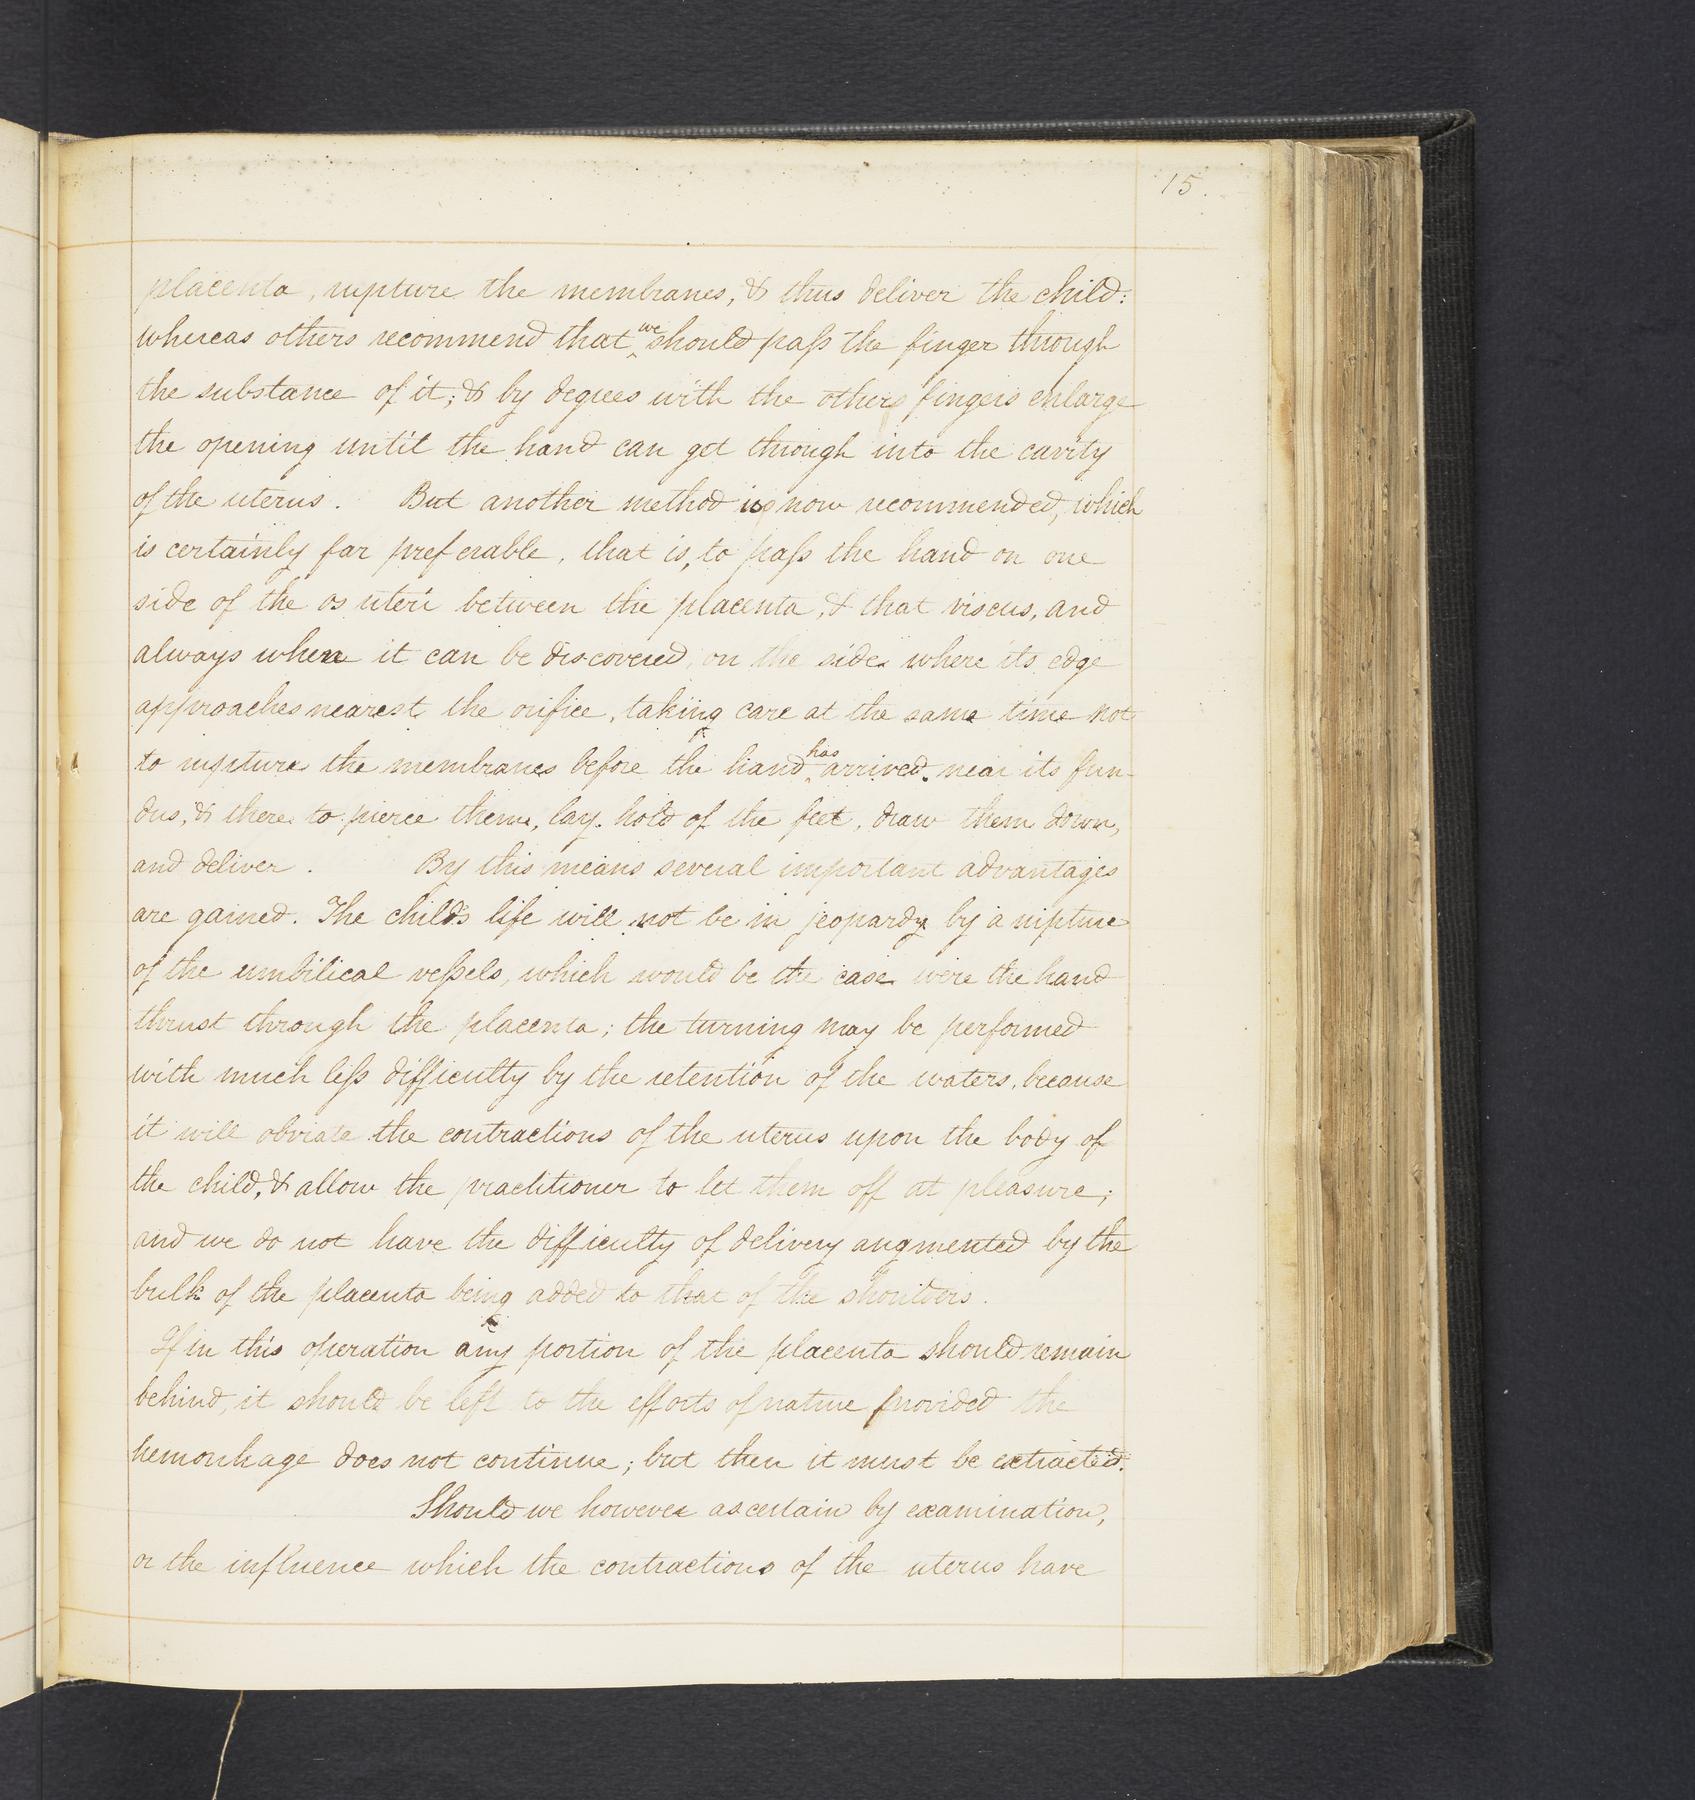 15.
placenta, rupture the membranes, & thus deliver the child:
whereas others recommend that we should paſs the finger through
the substance of it; & by degrees with the other fingers enlarge
the opening until the hand can get through into the cavity
of the uterus. But another method is now recommended, which
is certainly far preferable, that is, to paſs the hand on one
side of the os uteri between the placenta, & that viscus, and
always when it can be discovered, on the side where its edge
approaches nearest the orifice, taking care at the same time not
to rupture the membranes before the hand has arrived near its fun-
dus, & there to pierce them, lay hold of the feet, draw them down,
and deliver. By this means several important advantages
are gained. The child's life will not be in jeopardy by a rupture
of the umbilical veſsels, which would be the case were the hand
thrust through the placenta; the turning may be performed
with much leſs difficulty by the retention of the waters, because
it will obviate the contractions of the uterus upon the body of
the child, & allow the practitioner to let them off at pleasure;
and we do not have the difficulty of delivery augmented by the
bulk of the placenta being added to that of the shoulders.
If in this operation any portion of the placenta should remain
behind, it should be left to the efforts of nature provided the
hemorrhage does not continue; but then it must be extracted.
Should we however ascertain by examination,
or the influence which the contractions of the uterus have